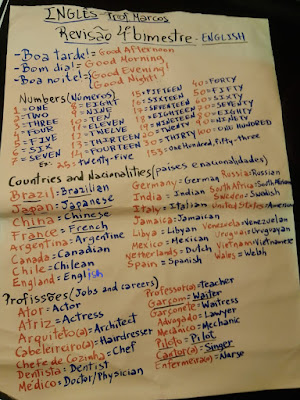 INGLÊS - Prof Marcos
Revisão 4º bimestre - ENGLISH
- Boa tarde! = Good Afternoon
- Bom dia! = Good Morning
- Boa noite! = Good Evening!
Good Night!
Numbers (Números)
1 = ONE
2 = TWO
3 = THREE
4 = FOUR
5 = FIVE
6 = SIX
7 = SEVEN
8 = EIGHT
9 = NINE
10 = TEN
11 = ELEVEN
12 = TWELVE
13 = THIRTEEN
14 = FOURTEEN
15 = FIFTEEN
16 = SIXTEEN
17 = SEVENTEEN
18 = EIGHTEEN
19 = NINETEEN
20 = TWENTY
30 = THIRTY
40 = FORTY
50 = FIFTY
60 = SIXTY
70 = SEVENTY
80 = EIGHTY
90 = NINETY
100 = ONE HUNDRED
Ex: 25 = Twenty-Five
153 = One Hundred, fifty-three
Countries and Nacionalities (países e nacionalidades)
Brazil = Brazilian
Japan = Japanese
China = Chinese
France = French
Argentina = Argentine
Canada = Canadian
Chile = Chilean
England = English
Germany = German
India = Indian
Italy = Italian
Jamaica = Jamaican
Libya = Libyan
Mexico = Mexican
Netherlands = Dutch
Spain = Spanish
Russia = Russian
South Africa = South African
Sweden = Swedish
United States = American
Venezuela = Venezuelan
Uruguai = Uruguayan
Vietnam = Vietnamese
Wales = Welsh
Profissões (Jobs and careers)
Ator = Actor
Atriz = Actress
Arquiteto(a) = Architect
Cabeleireiro(a) = Hairdresser
Chefe de Cozinha = Chef
Dentista = Dentist
Médico = Doctor/Physician
Professor(a) = Teacher
Garçom = Waiter
Garçonete = Waitress
Advogado = Lawyer
Mecânico = Mechanic
Piloto = Pilot
Cantor(a) = Singer
Enfermeiro(a) = Nurse